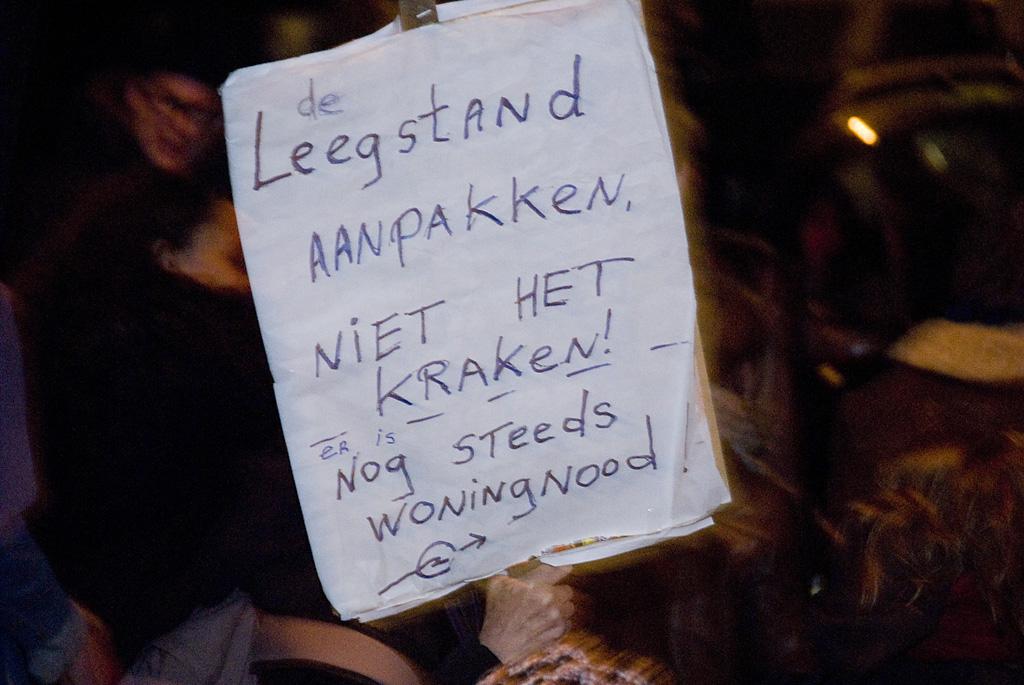 de
LeegstANd
AANPAKKeN,
NiET HET
KRAKeN!
eR is
NOg STeeds
WONiNgNOOd!